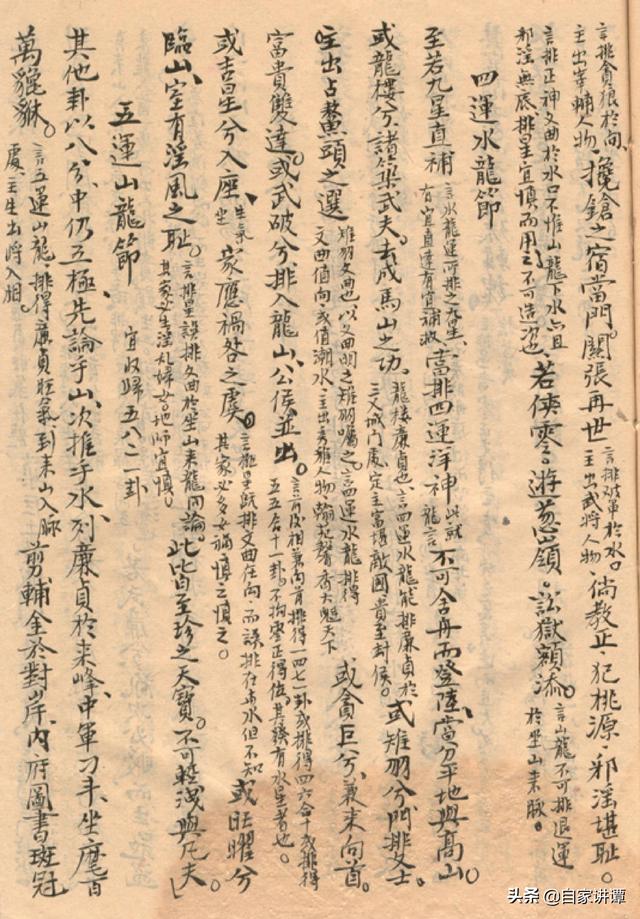 言排貪狼於向、主出宰輔人物、攙鎗之宿當門。關張再世言排破軍於水。主出武將人物倘教正、犯桃源、邪淫堪恥。
言排正神文曲於水口不惟山龍下水六且邪淫無底、排星宜慎而用之不可造次也、若使零、遊葱嶺。訟獄頻添。言山龍不可排退運於坐山來脈。
四運水龍節
至若九星直補言水龍運所排之九星、有宜直達有宜補救當排四運洋神此就龍言不可舍舟而登陸、當分平地與高山。
或龍樓兮、諸築武夫。去成馬山之功。龍樓廉貞也、言四運水龍能排廉貞於三叉城門處、定主富堪敵國貴至封侯。或雉羽兮、門排文士。
主出占鰲頭之選雉羽文曲也、以文曲明之雉羽囑之。言四運水龍排得文曲值向、或值潮水、主出秀雅人物翰苑馨香大魁天下或貪巨兮、兼來向首。
富貴雙達。或武破兮、排入龍山、公侯並出。言首尾相兼向首排得一四七一卦或排得四六合十或排得五五合十一卦、不拘零正得位。其後有水星者也。
或吉星兮入座、生氣坐家應禍咎之虞。言挨星既排文曲在向、而誤排在立水但不知其家必多女禍慎之慎之。或旺曜兮
臨山、室有淫風之恥。言排星誤排文曲於坐山來龍同論。其家必生淫乱婦女地師宜慎。此皆至珍之天寶。不可輕洩與凡夫。
五運山龍節 宜收歸五八二一卦
其他卦以八分、中仍五極、先論乎山、次推乎水、列廉貞於來峰、中軍刁斗、坐麾百
萬貔貅。言五運山龍、排得廉貞旺氣、到來山入脈處、主生出將入相。剪輔金於對岸、內府圖書、班冠
头条 @自家讲谭